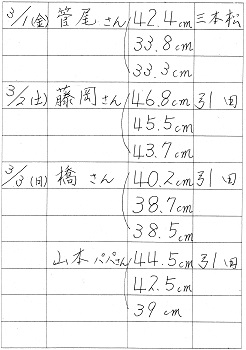 3/1(金) 菅尾さん 42.4cm 三本松
33.8cm
33.3cm
3/2(土) 藤岡さん 46.8cm 引田
45.5cm
43.7cm
3/3(日) 橋さん 40.2cm 引田
38.7cm
38.5cm
山本パパさん 44.5cm 引田
42.5cm
39cm